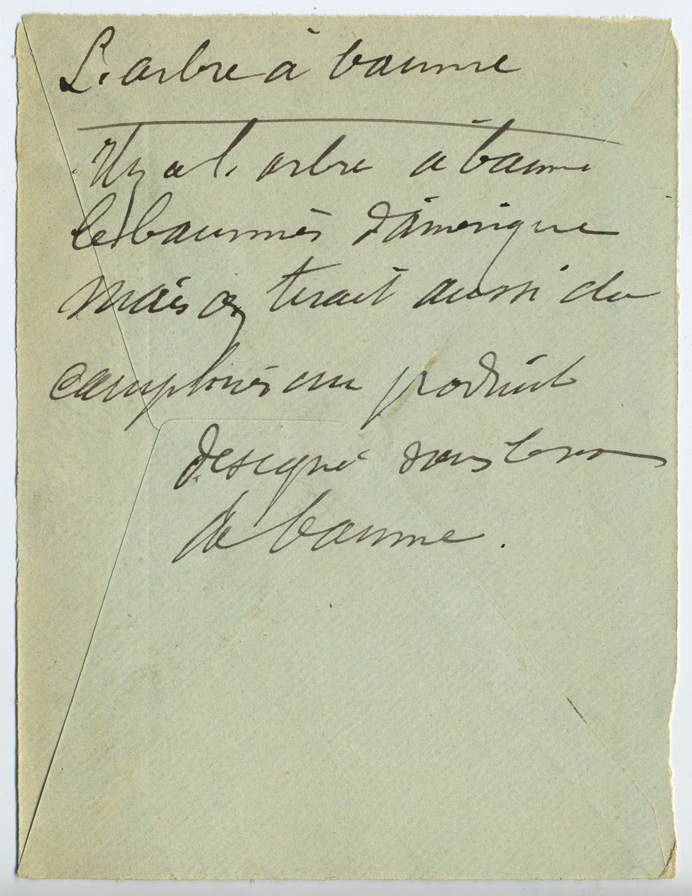 L'arbre à baume
Il y a l'arbre à baume
les baumes d'amérique
mais on tirait aussi du
camphrier un produit
designé sous le nom
de baume.